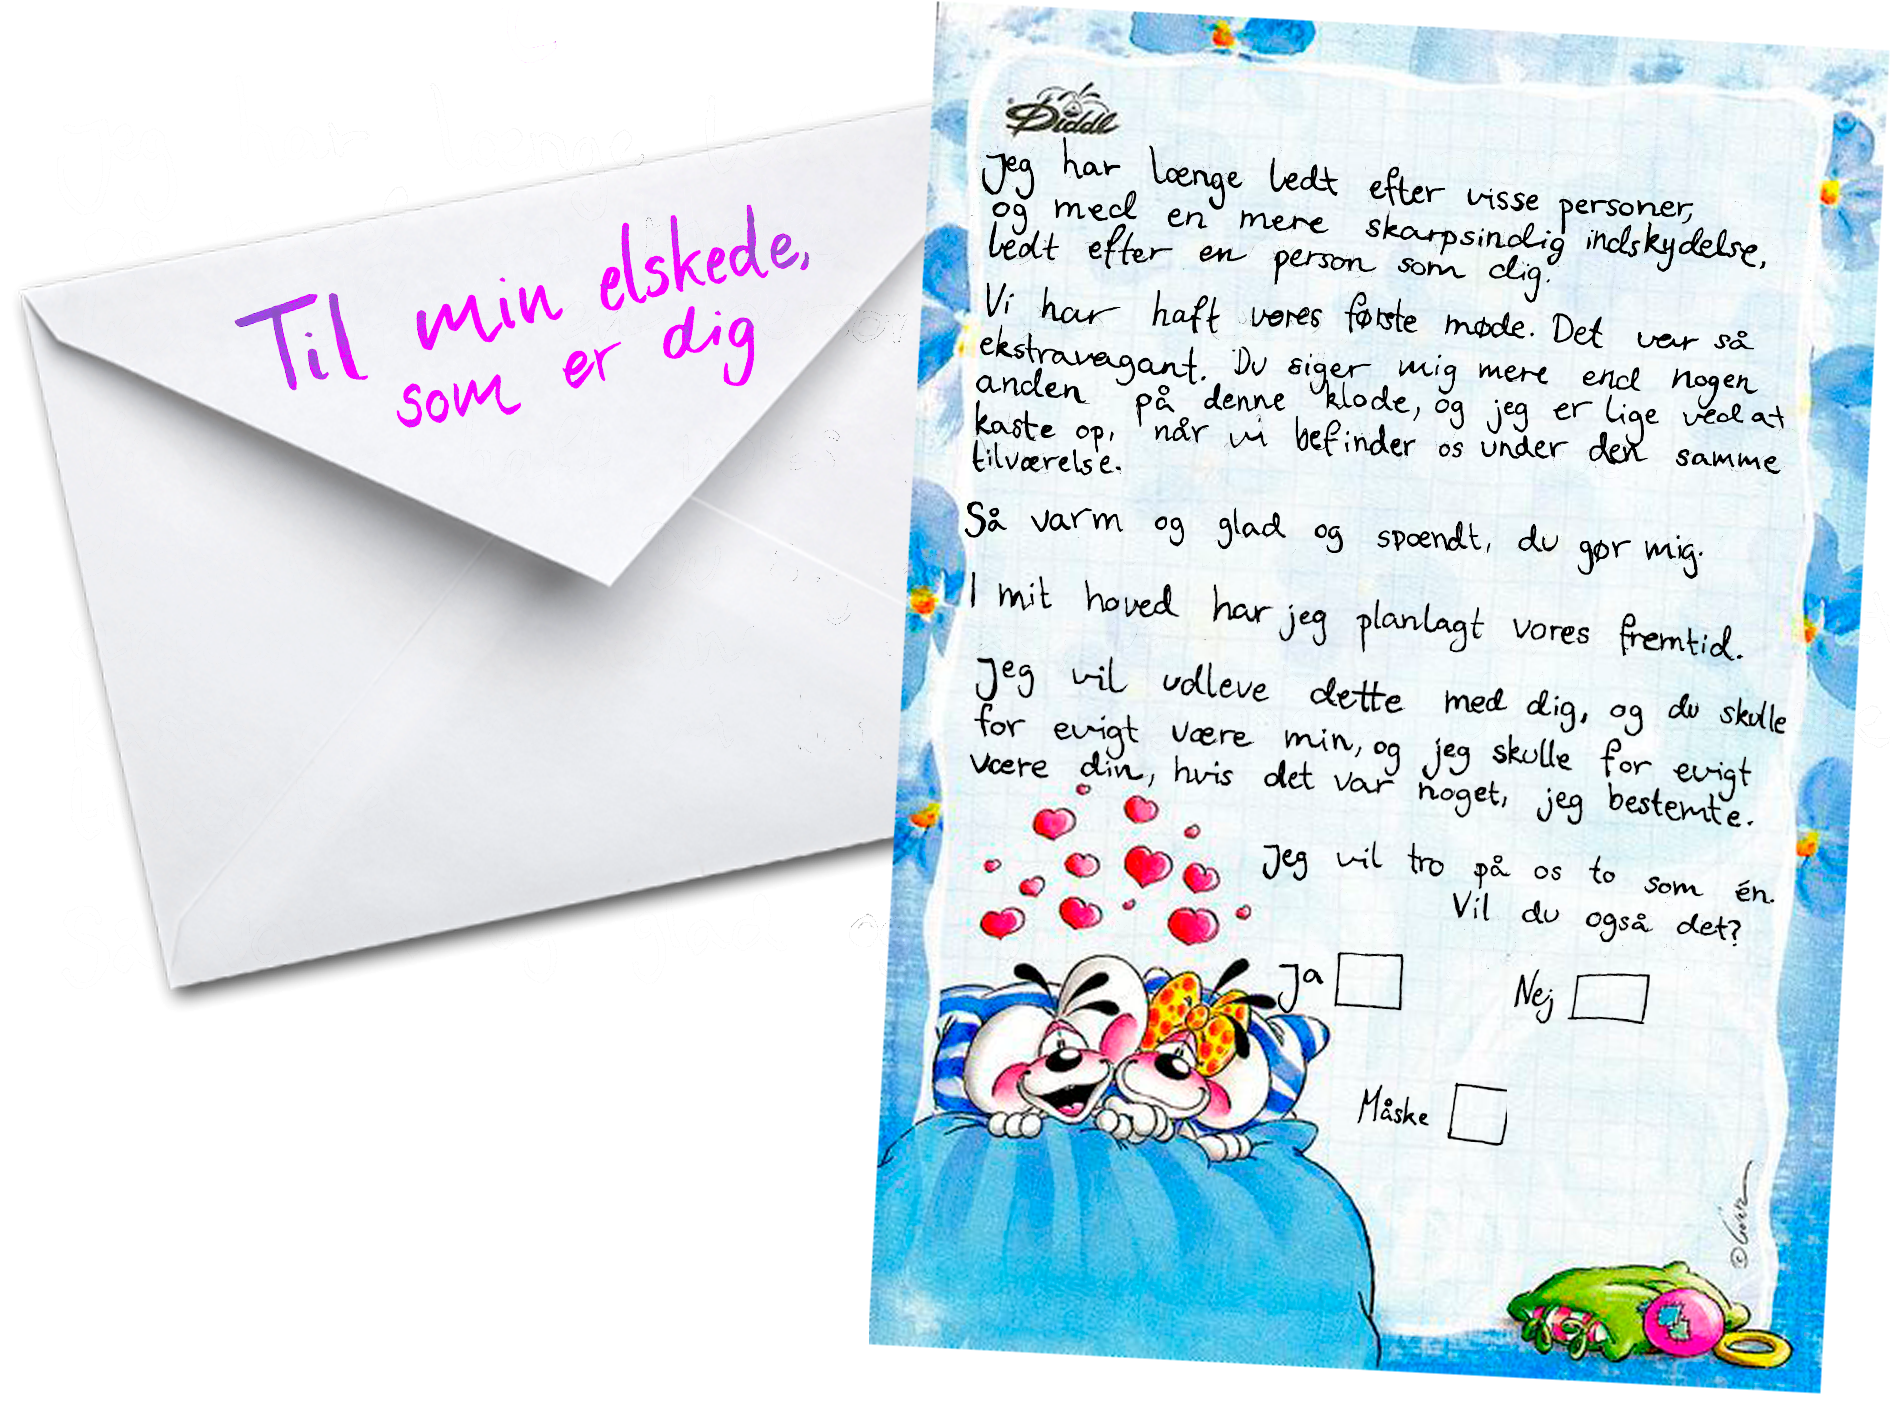 Til min elskede,
som er dig
Diddl
Jeg har længe ledt efter visse personer,
og med en mere skarpsindig indskydelse,
ledt efter en person som dig.
Vi har haft vores første møde. Det var så
ekstravagant. Du siger mig mere end nogen
anden på denne klode, og jeg er lige ved at
kaste op, når vi befinder os under den samme
tilværelse.
Så varm og glad og spændt, du gør mig.
I mit hoved har jeg planlagt vores fremtid.
Jeg vil udleve dette med dig, og du skulle
for evigt være min, og jeg skulle for evigt
være din, hvis det var noget, jeg bestemte.
Jeg vil tro på os to som én.
Vil du også det?
Ja
Nej
Måske